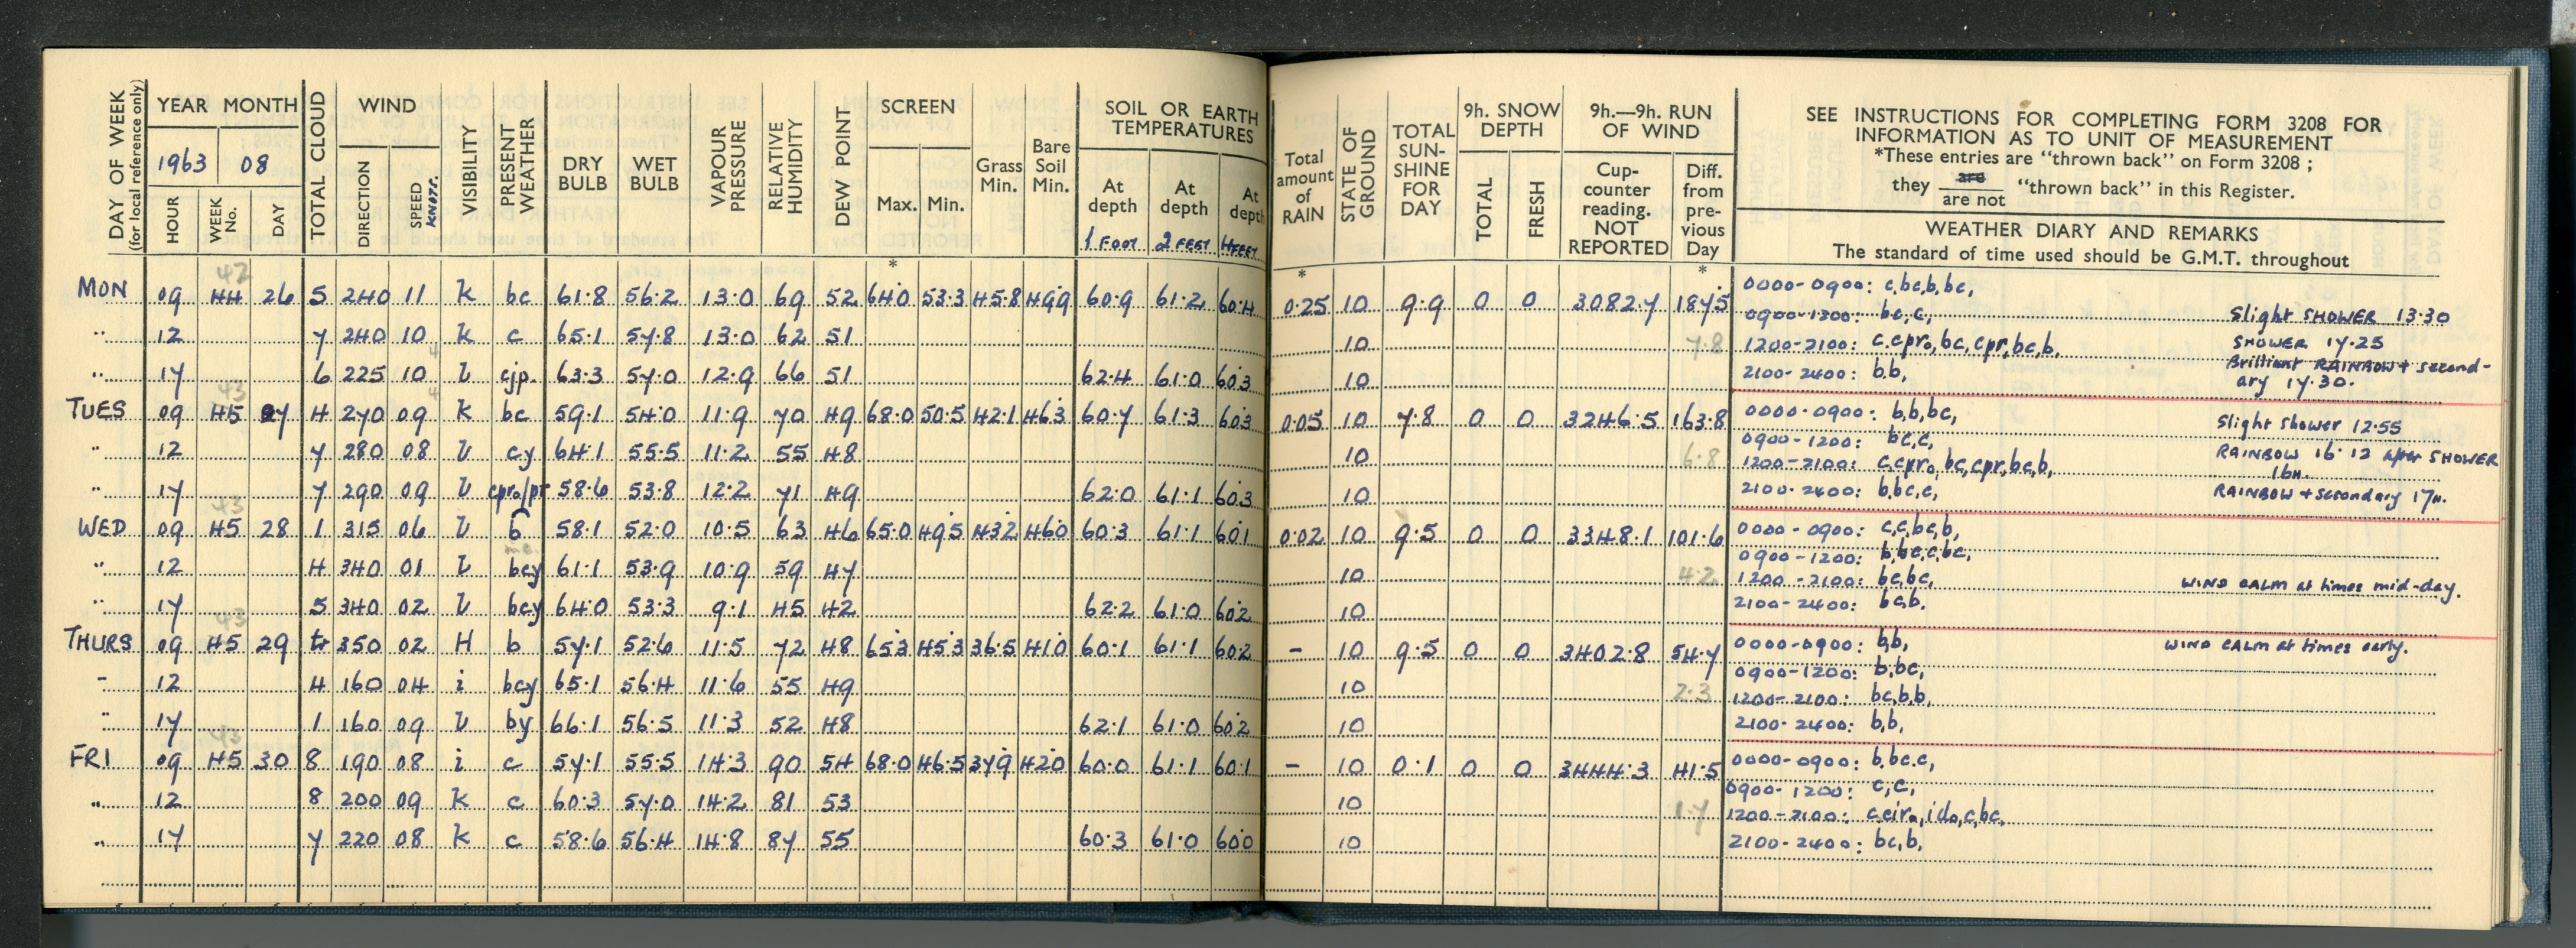 DAY OF WEEK
(for local reference only)
YEAR MONTH
1963 08
HOUR
WEEK No.
DAY
TOTAL CLOUD
WIND
DIRECTION
SPEED KNOTS.
VISIBILITY
PRESENT WEATHER
DRY BULB
WET BULB
VAPOUR PRESSURE
RELATIVE HUMIDITY
DEW POINT
SCREEN
Max.
Min.
Grass Min.
Bare Soil Min.
SOIL OR EARTH TEMPERATURES
At depth 1 FOOT
At depth 2 FEET
At depth 4 FEET
Total amount of RAIN
STATE OF GROUND
TOTAL SUN-SHINE FOR DAY
9h. SNOW DEPTH
TOTAL
FRESH
9h.—9h. RUN OF WIND
Cup-counter reading. NOT REPORTED
Diff. from pre-vious Day
SEE INSTRUCTIONS FOR COMPLETING FORM 3208 FOR
INFORMATION AS TO UNIT OF MEASUREMENT
*These entries are "thrown back" on Form 3208 ;
they are / are not "thrown back" in this Register.
WEATHER DIARY AND REMARKS
The standard of time used should be G.M.T. throughout
* * *
42
MON 09 44 26 5 240 11 k bc 61.8 56.2 13.0 69 52 64.0 53.3 45.8 49.9 60.9 61.2 60.4 0.25 10 9.9 0 0 3082.7 187.5 0000-0900: c,bc,b,bc,
0900-1200: bc,c, Slight SHOWER 13.30
" 12 7 240 10 k c 65.1 57.8 13.0 62 51 10 7.8 1200-2100: c.cpro,bc,cpr,bc,b, SHOWER 17.25
" 17 6 225 10 l cjp. 63.3 57.0 12.9 66 51 62.4 61.0 60.3 10 2100-2400: b.b, Brilliant RAINBOW + second-
ary 17.30.
43
TUES 09 45 27 4 270 09 k bc 59.1 54.0 11.9 70 49 68.0 50.5 42.1 46.3 60.7 61.3 60.3 0.05 10 7.8 0 0 3246.5 163.8 0000-0900: b,b,bc, Slight Shower 12.55
0900-1200: bc,c,
" 12 7 280 08 l cy 64.1 55.5 11.2 55 48 10 6.8 1200-2100: c,cpro, bc,cpr,bc,b, RAINBOW 16.12 after SHOWER
16H.
" 17 7 290 09 l cpro/pr 58.6 53.8 12.2 71 49 62.0 61.1 60.3 10 2100-2400: b,bc,c, RAINBOW + secondary 17H.
43
WED 09 45 28 1 315 06 l b 58.1 52.0 10.5 63 46 65.0 49.5 43.2 46.0 60.3 61.1 60.1 0.02 10 9.5 0 0 3348.1 101.6 0000-0900: c,c,bc,b,
0900-1200: b,bc,c,bc,
" 12 4 340 01 l bcy 61.1 53.9 10.9 59 47 10 4.2 1200-2100: bc,bc, WIND CALM at times mid-day.
" 17 5 340 02 l bcy 64.0 53.3 9.1 45 42 62.2 61.0 60.2 10 2100-2400: bc,b.
43
THURS 09 45 29 tr 350 02 H b 57.1 52.6 11.5 72 48 65.3 45.3 36.5 41.0 60.1 61.1 60.2 - 10 9.5 0 0 3402.8 54.7 0000-0900: b,b, WIND CALM at times early.
0900-1200: b,bc,
" 12 4 160 04 i bcy 65.1 56.4 11.6 55 49 10 2.3 1200-2100: bc,b,b,
" 17 1 160 09 l by 66.1 56.5 11.3 52 48 62.1 61.0 60.2 10 2100-2400: b,b,
43
FRI 09 45 30 8 190 08 i c 57.1 55.5 14.3 90 54 68.0 46.5 37.9 42.0 60.0 61.1 60.1 - 10 0.1 0 0 3444.3 41.5 0000-0900: b,bc,c,
0900-1200: c,c,
" 12 8 200 09 k c 60.3 57.0 14.2 81 53 10 1.7 1200-2100: c,ciro,ido,c,bc,
" 17 7 220 08 k c 58.6 56.4 14.8 87 55 60.3 61.0 60.0 10 2100-2400: bc,b,